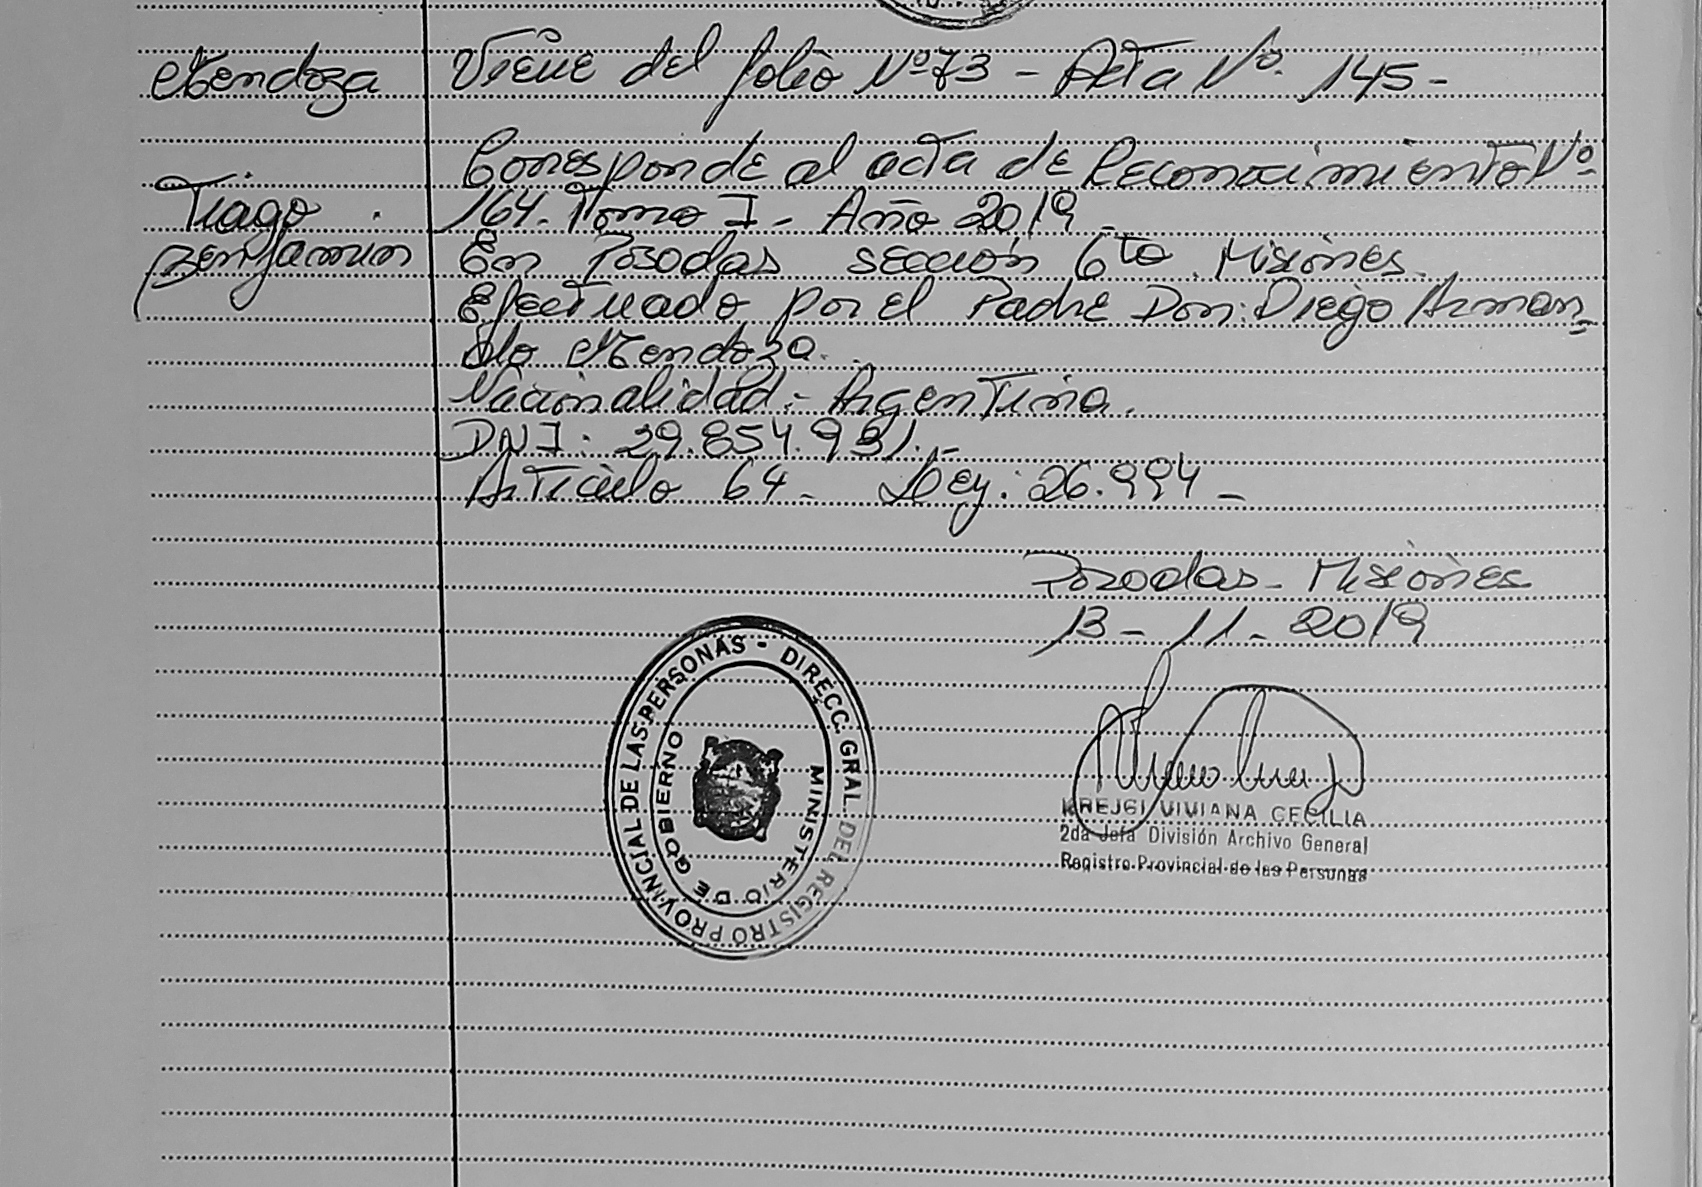 Mendoza
Viene del folio Nº 73 - Acta Nº. 145-
Corresponde al acta de Reconocimiento Nº
Tiago
164. Tomo I - Año 2019
Benjamin
En Posadas sección 6to Misiones.
Efectuado por el Padre Don: Diego Arman=
do Mendoza.
Nacionalidad:- Argentina.
DNI: 29.854.931.-
Articulo 64- Ley: 26.994-
Posadas - Misiones
13-11-2019
DIRECC. GRAL. DEL REGISTRO PROVINCIAL DE LAS PERSONAS -
MINISTERIO DE GOBIERNO
KREJCI VIVIANA CECILIA
2da Jefa División Archivo General
Registro Provincial de las Personas